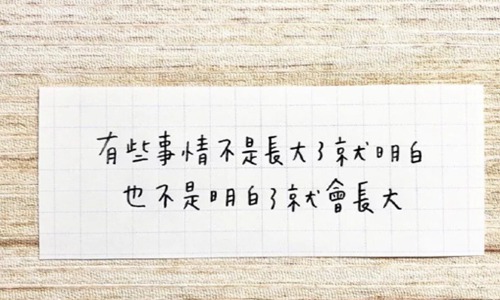 有些事情不是長大了就明白
也不是明白了就會長大